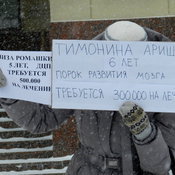 ЛИЗА РОМАШКИ
5 ЛЕТ, ДЦП
ТРЕБУЕТСЯ
500,000
НА ЛЕЧЕНИ
ТИМОНИНА АРИШ
6 ЛЕТ
ПОРОК РАЗВИТИЯ МОЗГА
ТРЕБУЕТСЯ 300000 НА ЛЕЧ